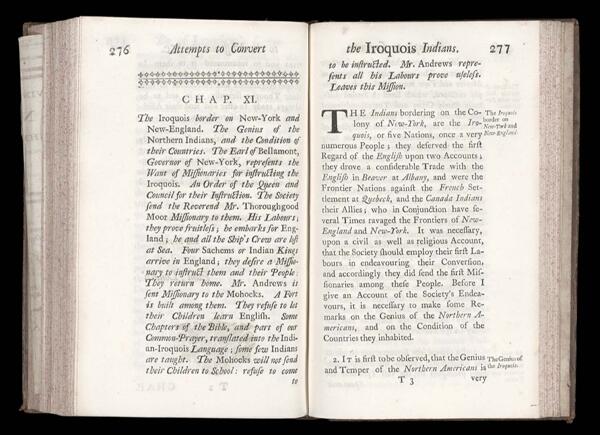 276 Attempts to Convert
CHAP. XI.
The Iroquois border on New-York and
New-England. The Genius of the
Northern Indians, and the Condition of
their Countries. The Earl of Bellamont,
Governor of New-York, repreſents the
Want of Miſſionaries for inſtructing the
Iroquois. An Order of the Queen and
Council for their Inſtruction. The Society
ſend the Reverend Mr. Thoroughgood
Moor Miſſionary to them. His Labours;
they prove fruitleſs; he embarks for Eng-
land; he and all the Ship's Crew are loſt
at Sea. Four Sachems or Indian Kings
arrive in England; they deſire a Miſſio-
nary to inſtruct them and their People:
They return home. Mr. Andrews is
ſent Miſſionary to the Mohocks. A Fort
is built among them. They refuſe to let
their Children learn Engliſh. Some
Chapters of the Bible, and part of our
Common-Prayer, tranſlated into the Indi-
an-Iroquois Language; ſome few Indians
are taught. The Mohocks will not ſend
their Children to School: refuſe to come
to
the Iroquois Indians. 277
to be inſtructed. Mr. Andrews repre-
ſents all his Labours prove uſeleſs.
Leaves this Miſſion.
THE Indians bordering on the Co-
lony of New-York, are the Iro-
quois, or five Nations, once a very
numerous People; they deſerved the firſt
Regard of the Engliſh upon two Accounts;
they drove a conſiderable Trade with the
Engliſh in Beaver at Albany, and were the
Frontier Nations againſt the French Set-
tlement at Quebeck, and the Canada Indians
their Allies; who in Conjunction have ſe-
veral Times ravaged the Frontiers of New-
England and New-York. It was neceſſary,
upon a civil as well as religious Account,
that the Society ſhould employ their firſt La-
bours in endeavouring their Converſion,
and accordingly they did ſend the firſt Miſ-
ſionaries among theſe People. Before I
give an Account of the Society's Endea-
vours, it is neceſſary to make ſome Re-
marks on the Genius of the Northern A-
mericans, and on the Condition of the
Countries they inhabited.
The Iroquois
border on
New-York and
New-England
2. IT is firſt to be obſerved, that the Genius
and Temper of the Northern Americans is
The Genius of
the Iroquois.
T 3 very